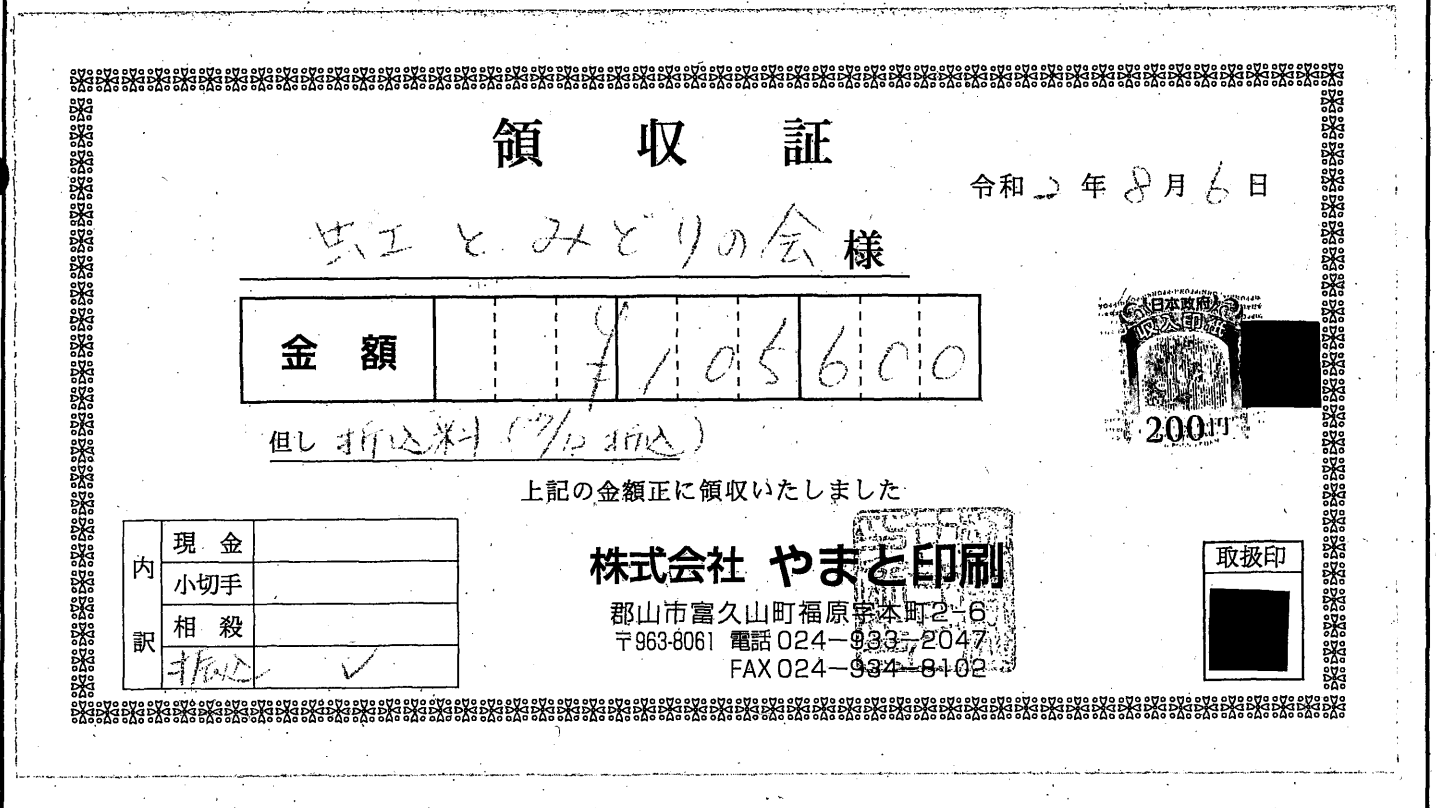 領収証
令和2年8月6日
虹とみどりの会 様
金額 ¥105600
日本政府
収入印紙
200円
但し 折込料( /12 折込)
上記の金額正に領収いたしました
内訳
現金
小切手
相殺
折込 ✓
株式会社 やまと印刷
郡山市富久山町福原字本町2-6
〒963-8061 電話024-933-2047
FAX024-934-8102
取扱印